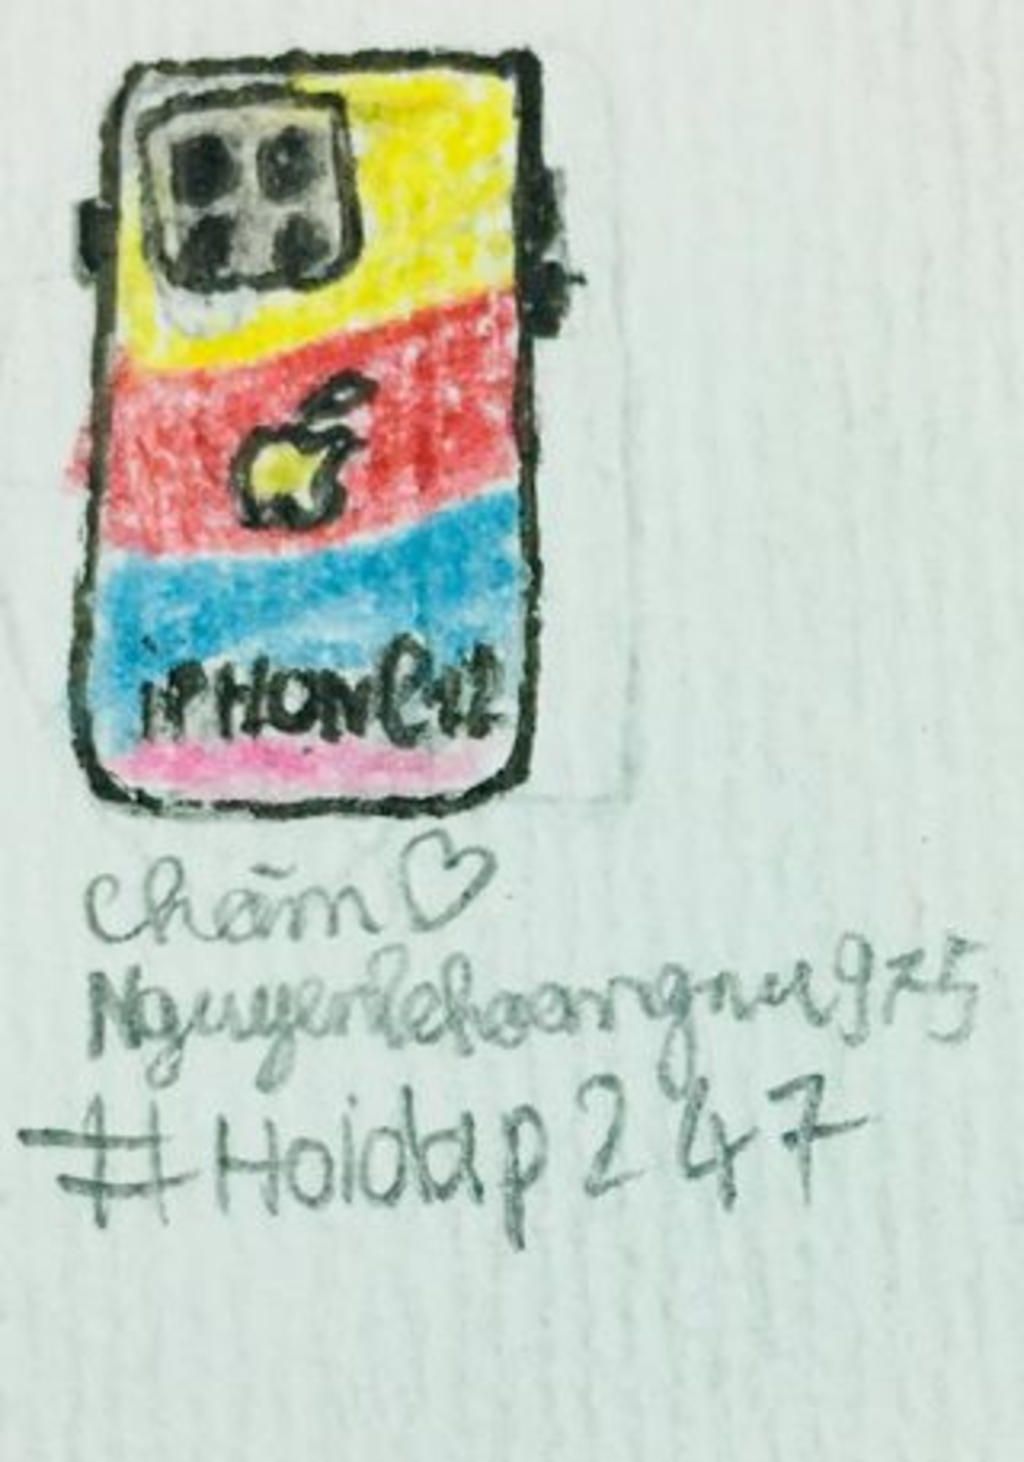 iPHONE12
chấm♡
Nguyenlehoangnu975
#Hoidap247